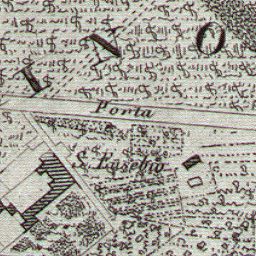 I N O
Porta
S. Eusebio